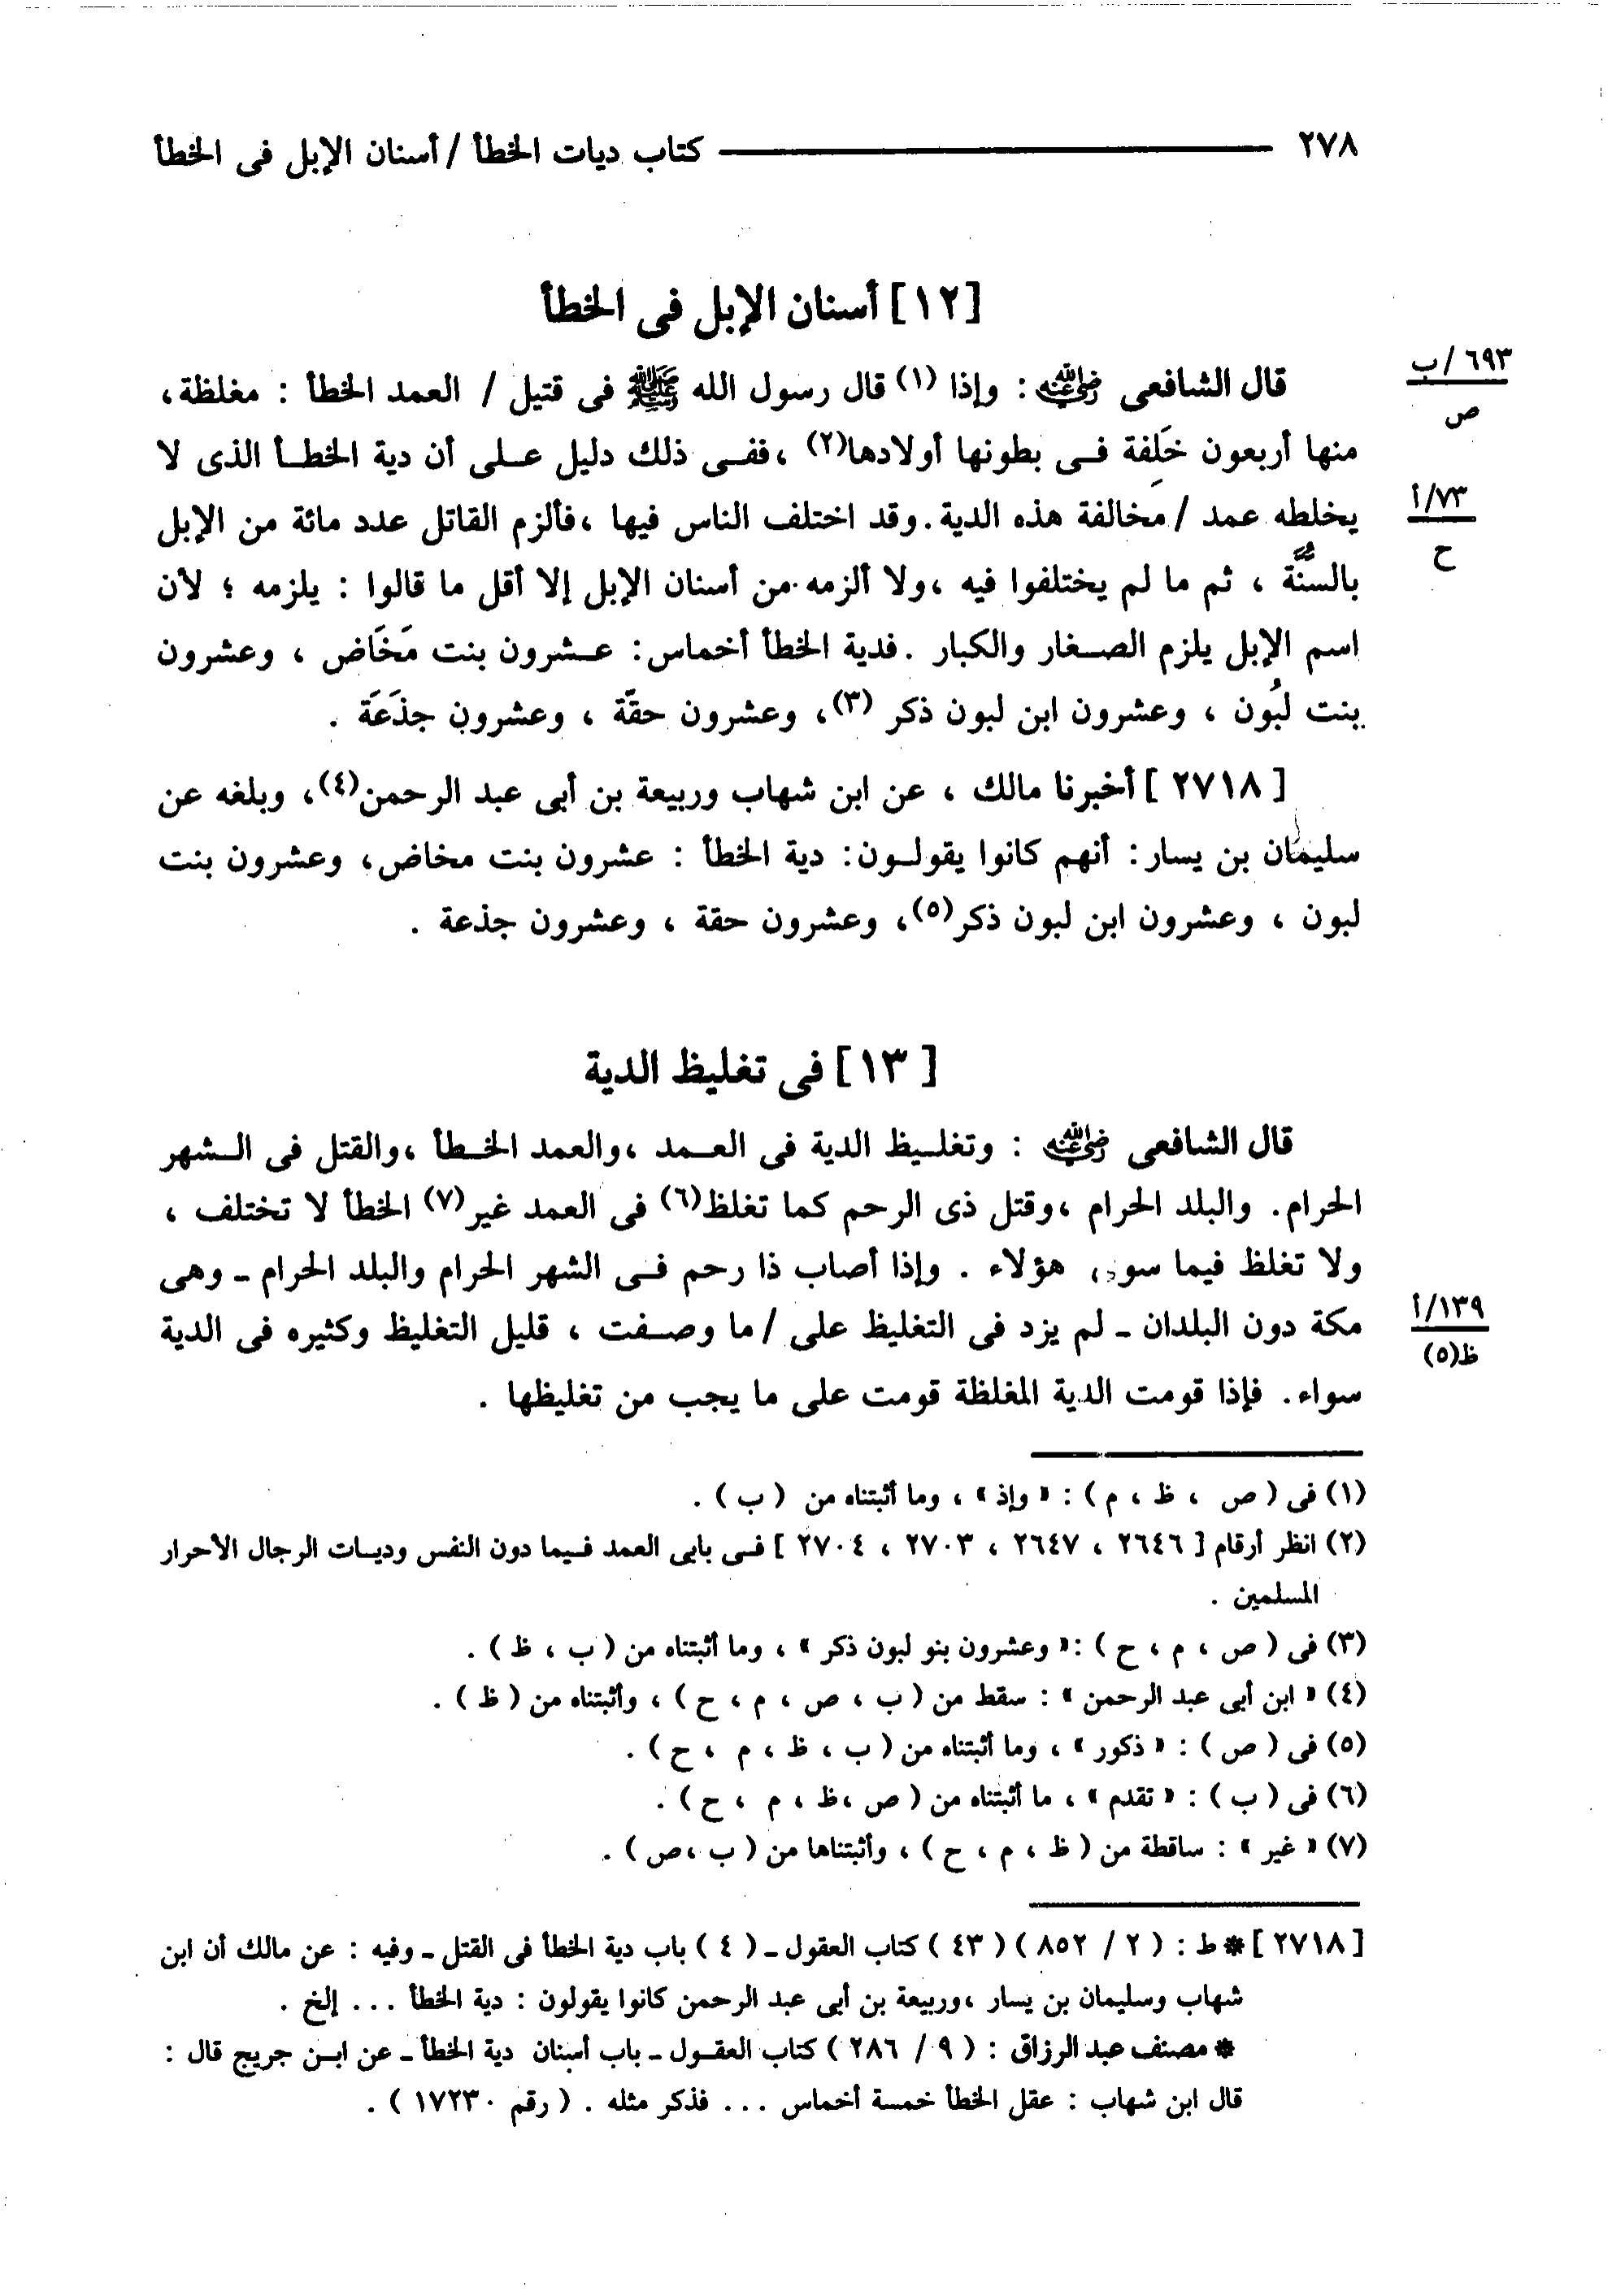 ٢٧٨ كتاب ديات الخطأ / أسنان الإبل فى الخطأ
[١٢] أسنان الإبل فى الخطأ
قال الشافعى رضي الله عنه : وإذا (١) قال رسول الله ﷺ فى قتيل / العمد الخطأ : مغلظة،
٦٩٣ / ب
ص
منها أربعون خَلِفة فـى بطونها أولادها(٢) ،ففـى ذلك دليل عـلـى أن دية الخطـأ الذى لا
يخلطه عمد / مخالفة هذه الدية. وقد اختلف الناس فيها ،فألزم القاتل عدد مائة من الإبل
٧٣/أ
ح
بالسُّنَّة ، ثم ما لم يختلفوا فيه ،ولا ألزمه من أسنان الإبل إلا أقل ما قالوا : يلزمه ؛ لأن
اسم الإبل يلزم الصـغار والكبار . فدية الخطأ أخماس: عـشرون بنت مَخَاض ، وعشرون
بنت لَبُون ، وعشرون ابن لبون ذكر (٣)، وعشرون حقَّة ، وعشرون جذَعَة .
[ ٢٧١٨ ] أخبرنا مالك ، عن ابن شهاب وربيعة بن أبى عبد الرحمن(٤)، وبلغه عن
سليمان بن يسار: أنهم كانوا يقولـون: دية الخطأ : عشرون بنت مخاض، وعشرون بنت
لبون ، وعشرون ابن لبون ذكر(٥)، وعشرون حقة ، وعشرون جذعة .
[ ١٣] فى تغليظ الدية
قال الشافعى رضي الله عنه : وتغلـيظ الدية فى العـمد ،والعمد الخـطأ ،والقتل فى الـشهر
الحرام. والبلد الحرام ،وقتل ذى الرحم كما تغلظ(٦) فى العمد غير(٧) الخطأ لا تختلف ،
ولا تغلظ فيما سوى هؤلاء . وإذا أصاب ذا رحم فـى الشهر الحرام والبلد الحرام ـ وهى
مكة دون البلدان ـ لم يزد فى التغليظ على / ما وصـفت ، قليل التغليظ وكثيره فى الدية
١٣٩/أ
ظ(٥)
سواء. فإذا قومت الدية المغلظة قومت على ما يجب من تغليظها .
(١) فى ( ص ، ظ ، م ) : « وإذ » ، وما أثبتناه من ( ب ) .
(٢) انظر أرقام [ ٢٦٤٦ ، ٢٦٤٧ ، ٢٧٠٣ ، ٢٧٠٤ ] فـى بابى العمد فـيما دون النفس وديـات الرجال الأحرار
المسلمين .
(٣) فى ( ص ، م ، ح ) :« وعشرون بنو لبون ذكر » ، وما أثبتناه من ( ب ، ظ ) .
(٤) « ابن أبى عبد الرحمن » : سقط من ( ب ، ص ، م ، ح ) ، وأثبتناه من ( ظ ) .
(٥) فى ( ص ) : « ذكور » ، وما أثبتناه من ( ب ، ظ ، م ، ح ) .
(٦) فى ( ب ) : « تقدم » ، ما أثبتناه من ( ص ،ظ ، م ، ح ) .
(٧) « غير » : ساقطة من ( ظ ، م ، ح ) ، وأثبتناها من ( ب ،ص ) .
[ ٢٧١٨ ] * ط : ( ٢ / ٨٥٢ ) ( ٤٣ ) كتاب العقول ـ ( ٤ ) باب دية الخطأ فى القتل ـ وفيه : عن مالك أن ابن
شهاب وسليمان بن يسار ،وربيعة بن أبى عبد الرحمن كانوا يقولون : دية الخطأ ... إلخ .
* مصنف عبد الرزاق : ( ٩ / ٢٨٦ ) كتاب العقـول ـ باب أسنان دية الخطأ ـ عن ابـن جريج قال :
قال ابن شهاب : عقل الخطأ خمسة أخماس ... فذكر مثله . ( رقم ١٧٢٣٠ ) .